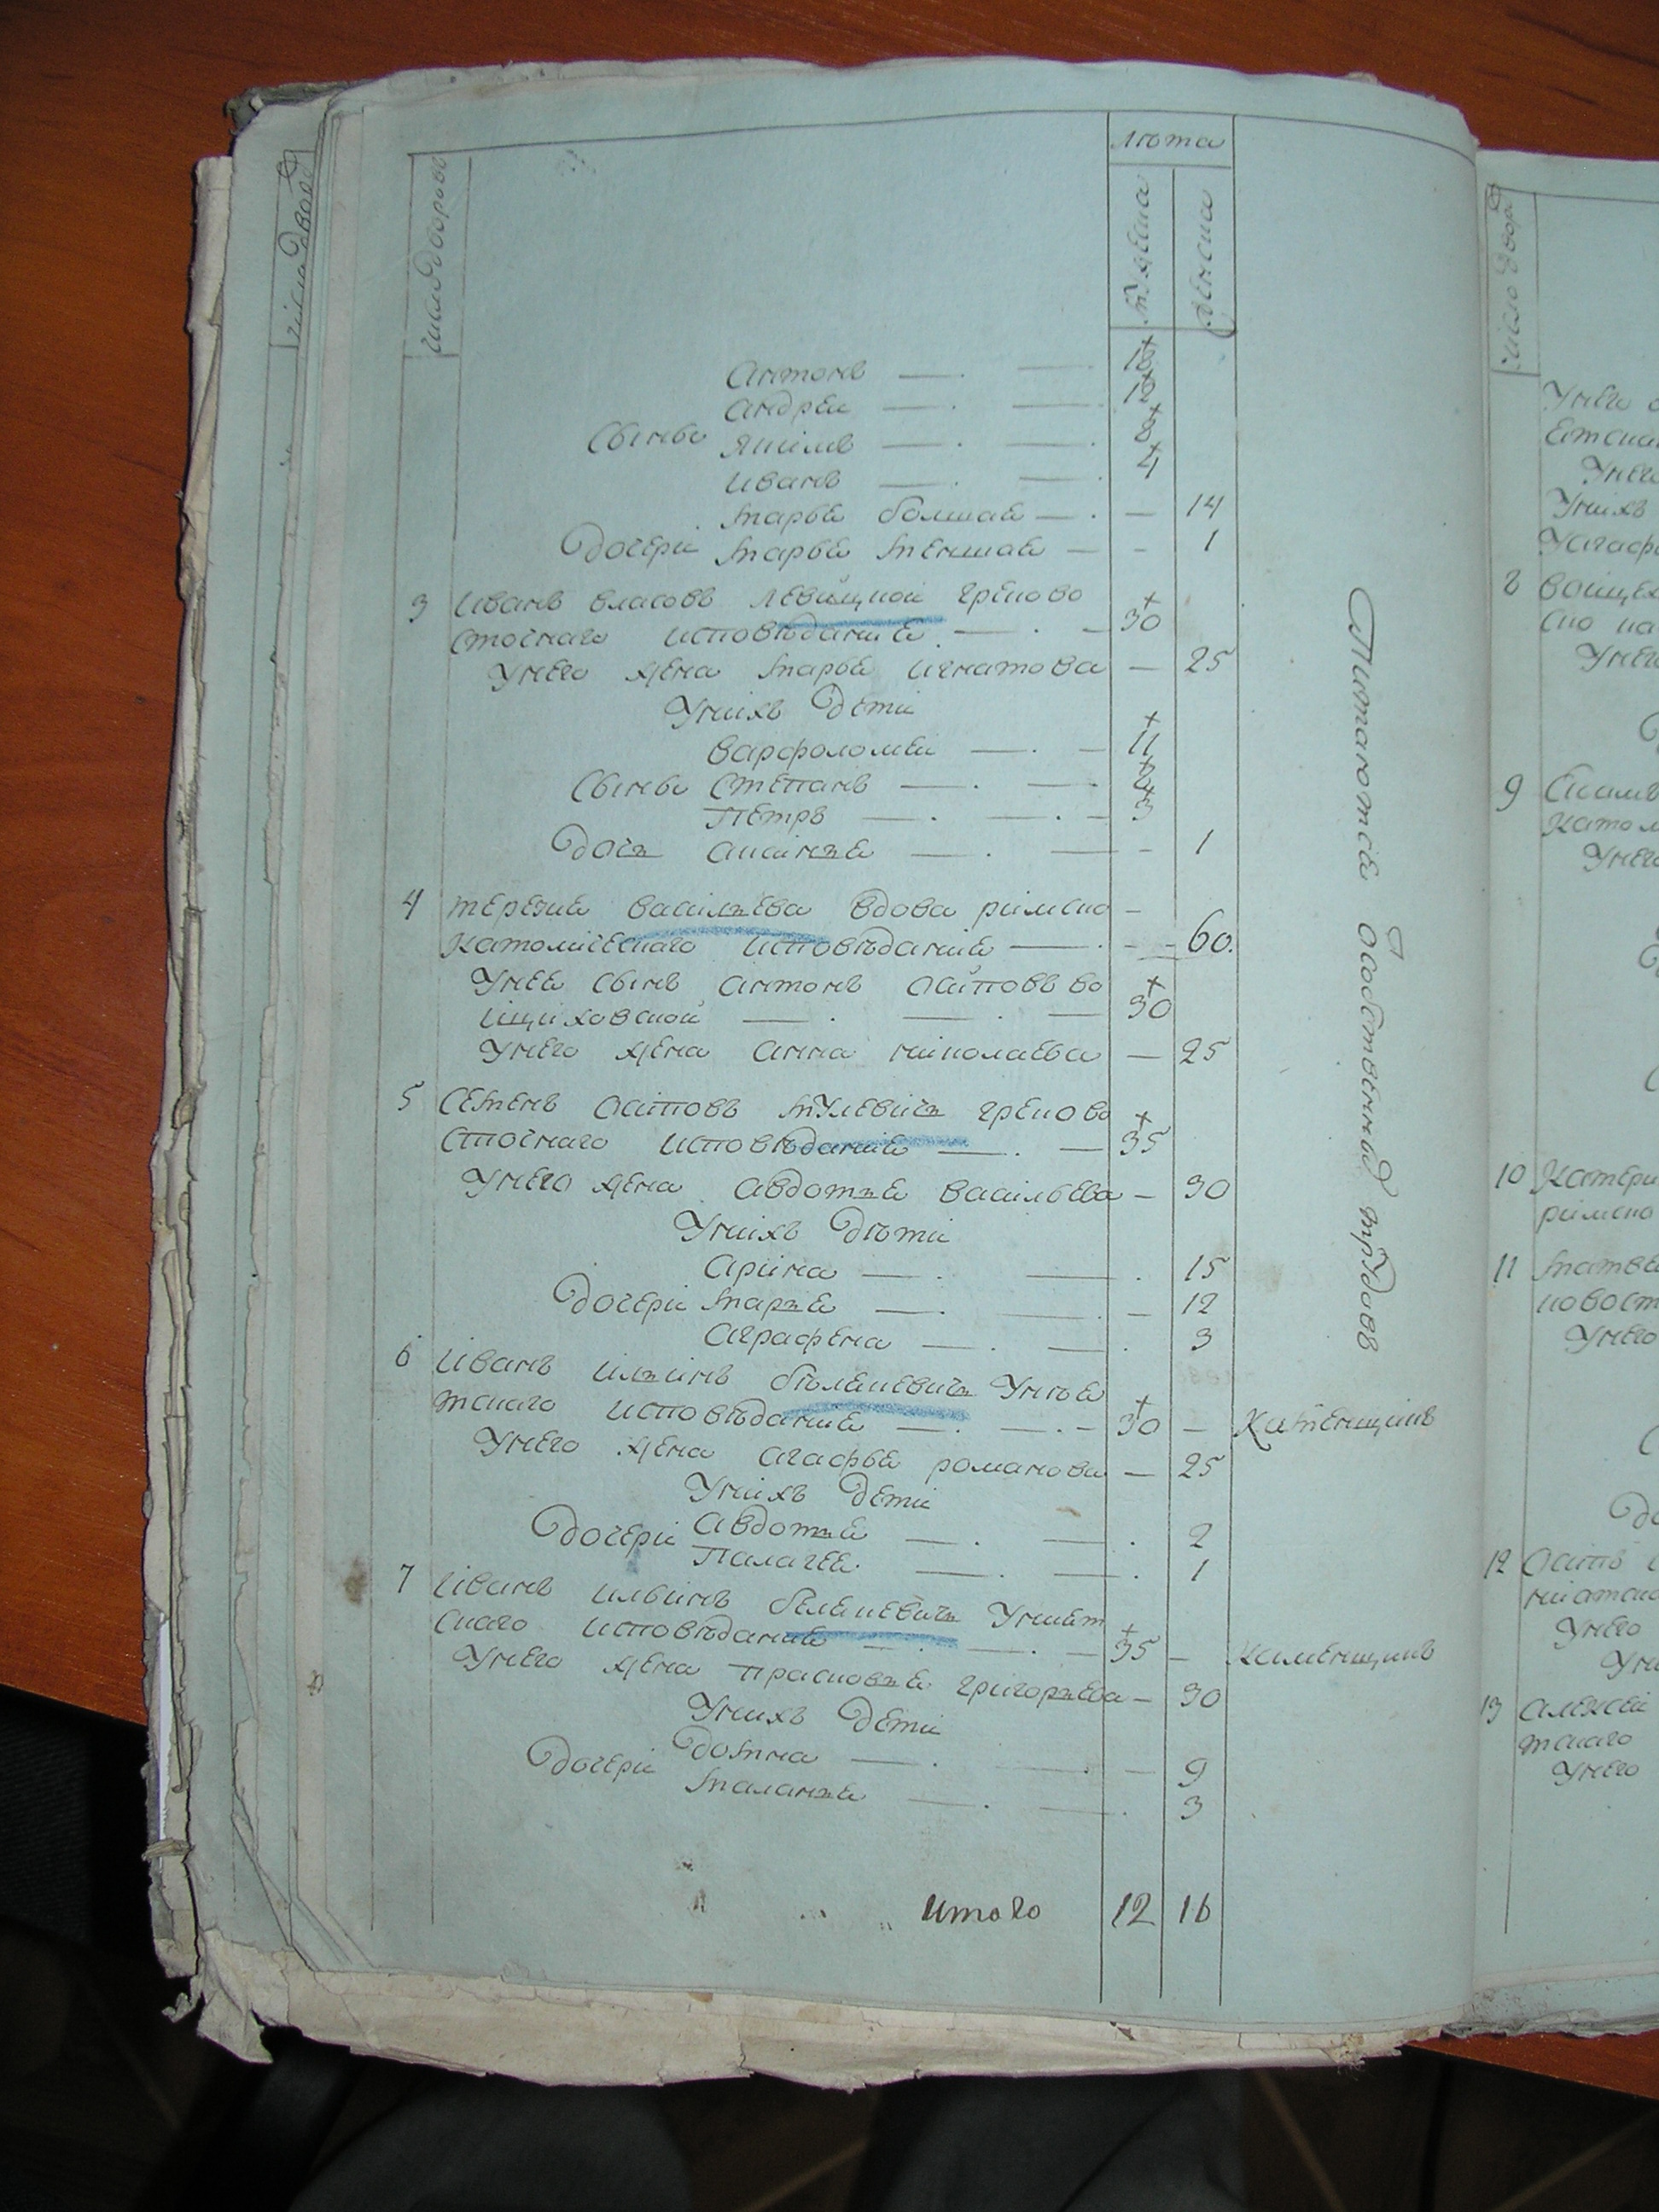 число дворовъ
лѣта
мужеска
женска
антонъ — . — 18
андреи — . — 12
Сынъи якимъ — . — 8
иванъ — . — 4
марья болшая — . — 14
Дочери марья меншая — - 1
3 иванъ власовъ левицкой греково
сточнаго исповѣдания — . — 30
Унего жена марья игнатова — 25
Унихъ дети
варфоломеи — . — 11
Сынъи степанъ — . —
петръ — . — . — 3
Дочь аксинья — . — - 1
4 терезия васильева вдова римско —
католическаго исповѣдания — . - - 60.
Унее сынъ антонъ осиповъ во
ицiховской — . — . — 30
Унего жена анна николаева — 25
5 семенъ осиповъ мулевичь греково
сточнаго исповѣдания — . — 35
Унего жена авдотья васильева — 30
Унихъ дѣти
арина — . — . 15
Дочери марья — . — — 12
аграфена — . — . 3
6 иванъ ильинъ бѣлякевичь Уния
тскаго исповѣдания — . — . — 30 — каменщикъ
Унего жена агафья романова — 25
Унихъ дети
Дочери авдотья — . — . 2
палагея — . — . 1
7 иванъ ильинъ белякевичь Уният
скаго исповѣдания — . — . — 35 — каменщикъ
Унего жена прасковья григорьева — 30
Унихъ дети
Дочери домна — . — . — 9
маланья — . — . 3
итого 12 16
Питаются Особственныхъ трудовъ
число двор
Унего
Унего
Унихъ
8 воицех
ско ка
Унего
9
като
Унего
10 катери
римско
11 матве
ковост
Унего
12 осипъ
ниатско
Унего
Уни
13 алексеи
тскаго
Унего